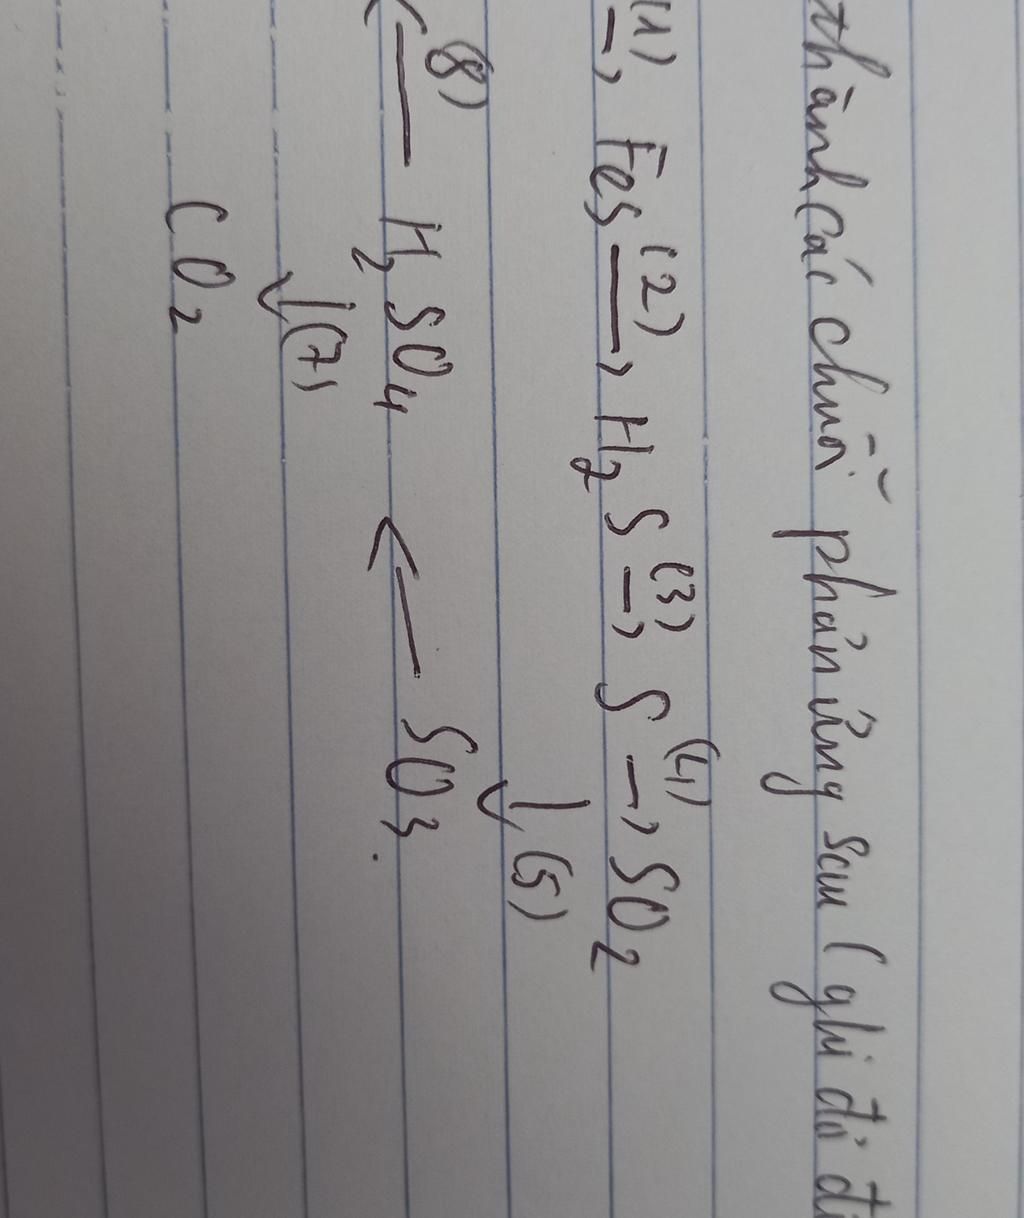 thành các chuỗi phản ứng sau (ghi đủ đi
(1)→ FeS (2)→ H₂S (3)→ S (4)→ SO₂
↓ (5)
← (8) H₂SO₄ ← SO₃.
↓ (7)
CO₂